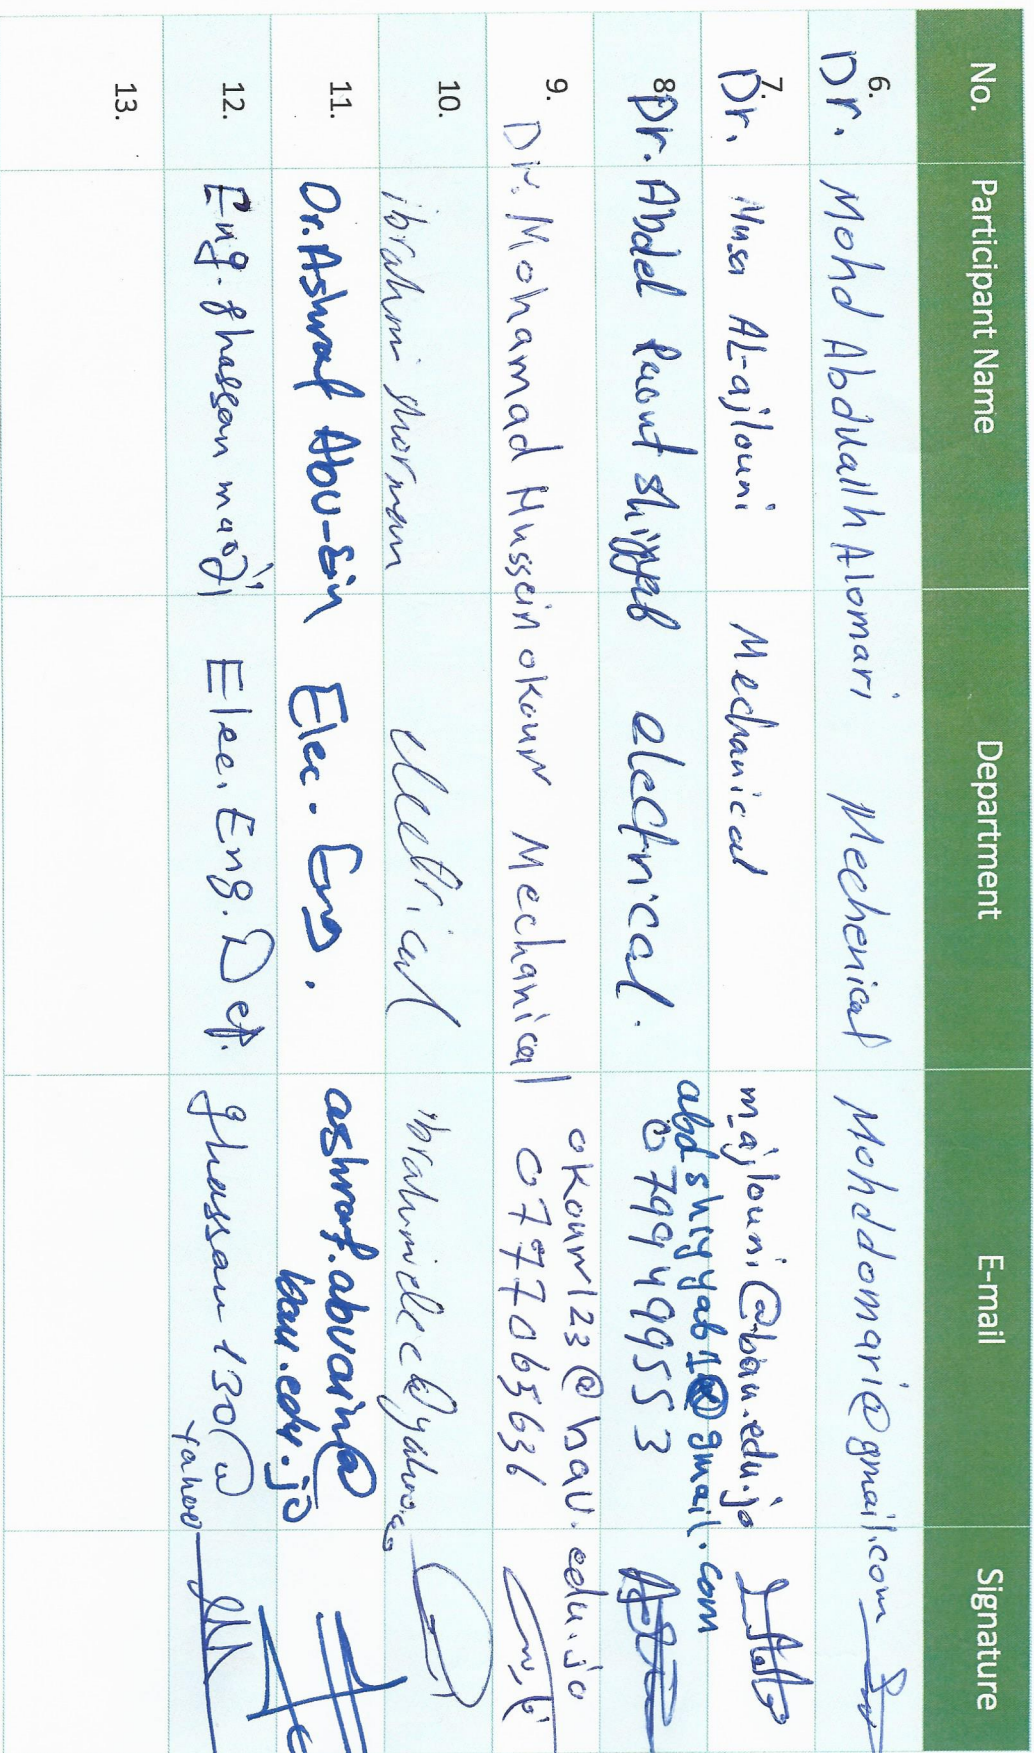 No. Participant Name Department E-mail Signature
6. Dr. Mohd Abduallh Alomari Mechenical Mohddomari@gmail.com
7. Dr. Musa AL-ajlouni Mechanical m_ajlouni@bau.edu.jo
8. Dr. Abdel shiyyab electrical. abdshiyyab1@gmail.com
0799499553
9. DR. Mohamad Hussein okour Mechanical okour123@bau.edu.jo
0777065636
10. ibrahim shorman electrical
11. Dr. Ashraf Abu-Ein Elec. Eng. ashraf.abuain@
bau.edu.jo
12. Eng. ghassan Elec. Eng. Dep. ghassan130@
yahoo
13.